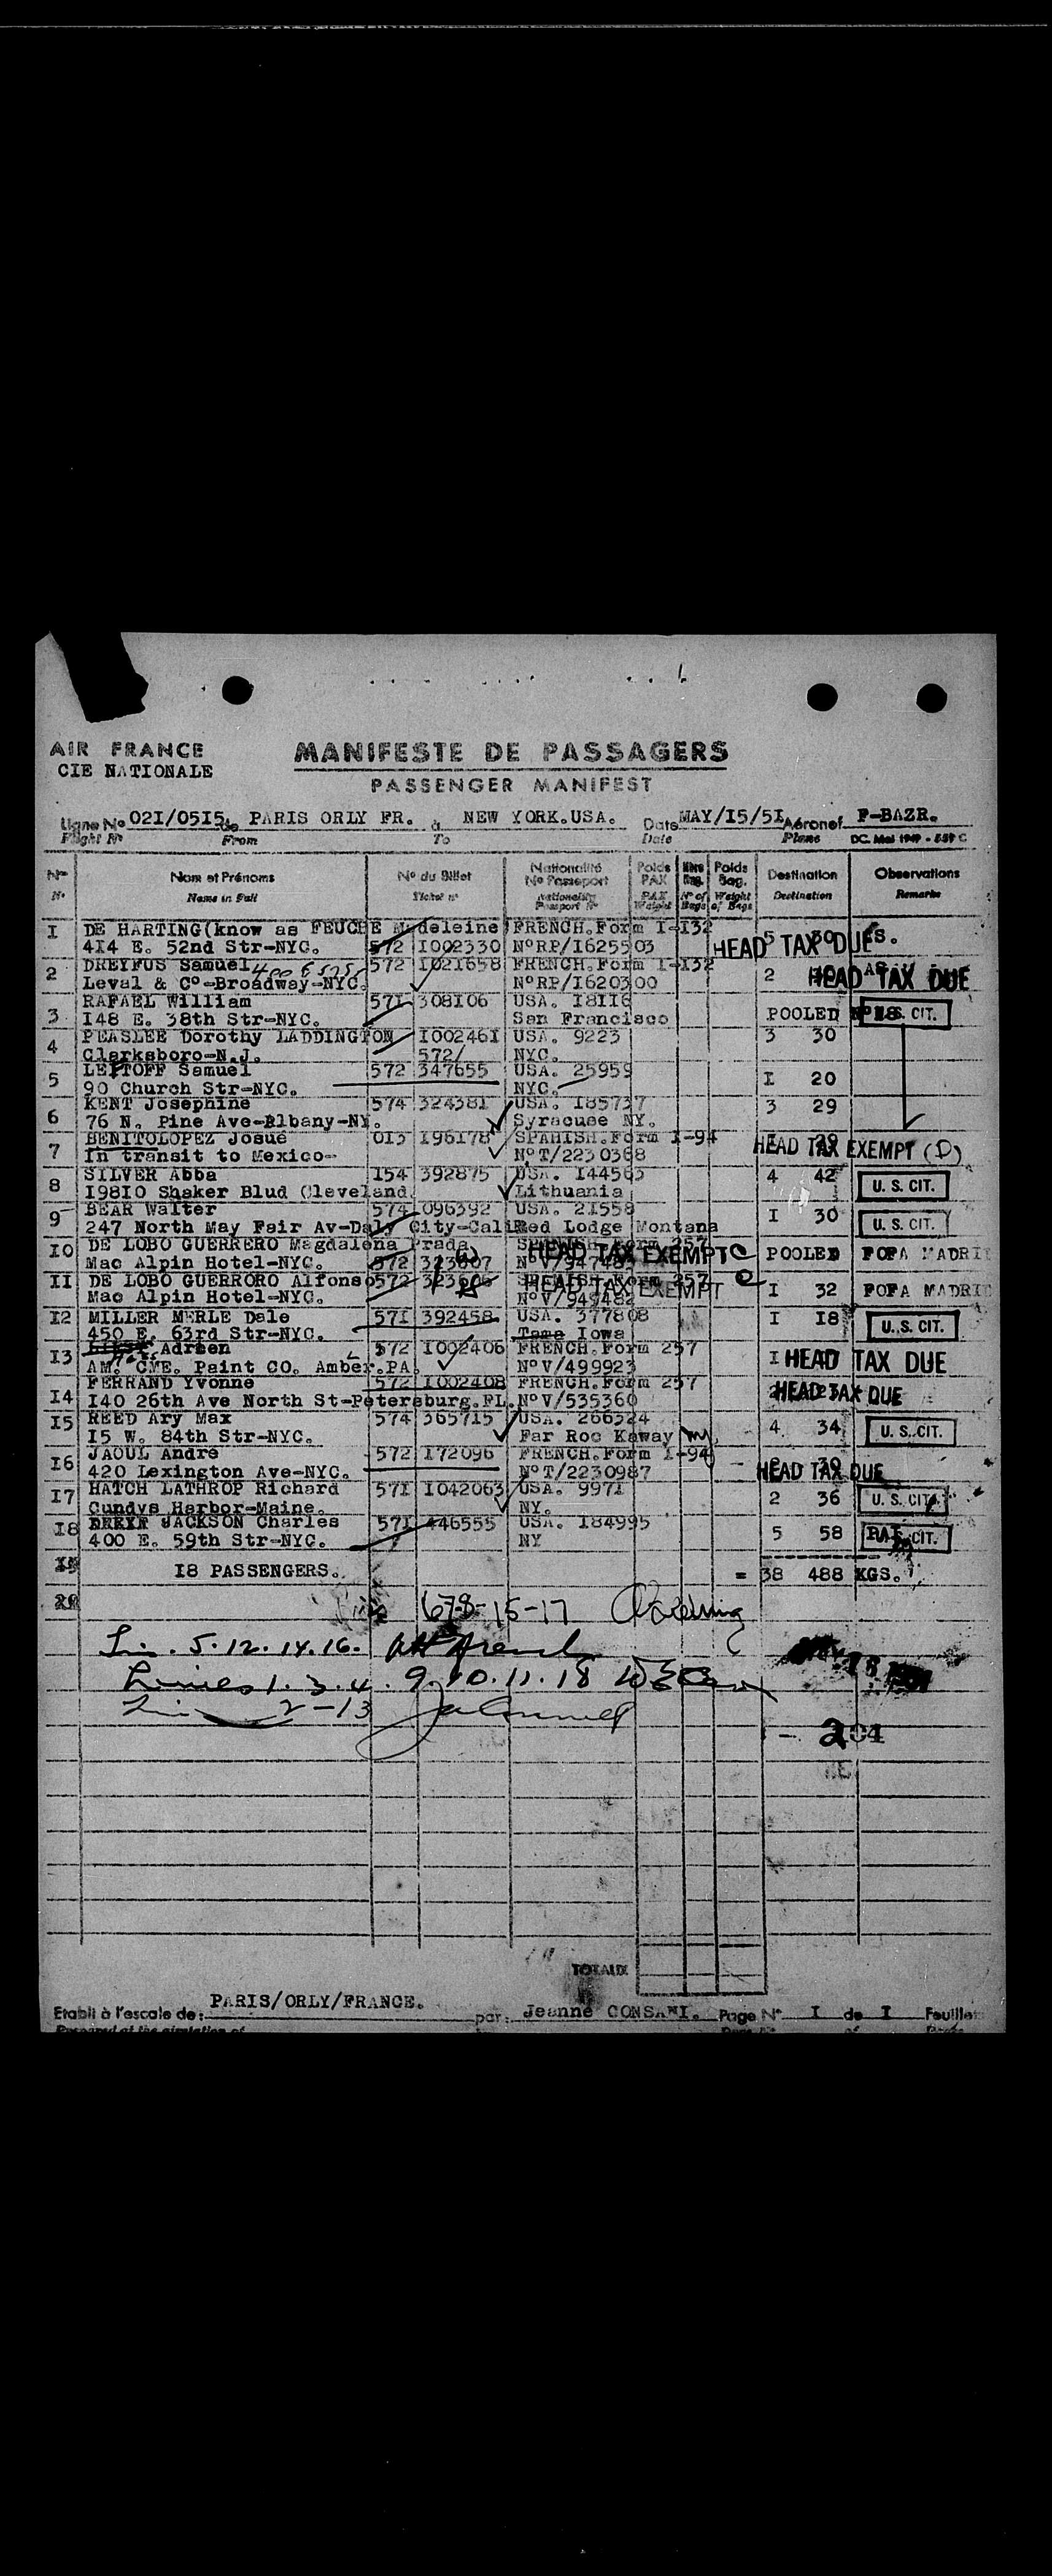 AIR FRANCE
CIE NATIONALE
MANIFESTE DE PASSAGERS
PASSENGER MANIFEST
Ligne No 02I/05I5 de PARIS ORLY FR. à NEW YORK.USA. Date MAY/I5/5I Aéronef F-BAZR.
Flight No From To Date Plane DC. Mod 1949 - 559 C
Nos Nom et Prénoms No du Billet Nationalité No Passeport Poids PAX Nbre Bag. Poids Bag. Destination Observations
No. Name in Full Ticket no Nationality Passport No PAX Weight No of Bags Weight of Bags Destination Remarks
I DE HARTING(know as FEUCHE Madeleine FRENCH.Form I-I32
4I4 E. 52nd Str-NYC. 572 I002330 NoRP/I625503 5 HEAD TAX DUE
2 DREYFUS Samuel 400 E 52 572 I02I658 FRENCH.Form I-I32
Leval & Co-Broadway-NYC. NoRP/I620300 2 HEAD TAX DUE
3 RAFAEL William 57I 308I06 USA. I8II6
I48 E. 38th Str-NYC. San Francisco POOLED U. S. CIT.
4 PEASLEE Dorothy LADDINGTON I00246I USA. 9223 3 30
Clarksboro-N.J. 572/ NYC.
5 LEFTOFF Samuel 572 347655 USA. 25959
90 Church Str-NYC. NYC. I 20
6 KENT Josephine 574 32438I USA. I85737 3 29
76 N. Pine Ave-Albany-NY. Syracuse NY.
7 BENITOLOPEZ Josué 0I5 I96I78 SPANISH.Form I-94
In transit to Mexico- NoT/2230368 HEAD TAX EXEMPT (D)
8 SILVER Abba I54 392875 USA. I44563 4 42
I98I0 Shaker Blud Cleveland. Lithuania U. S. CIT.
9 BEAR Walter 574 096392 USA. 2I558 I 30
247 North May Fair Av-Daly City-Calif Red Lodge Montana U. S. CIT.
I0 DE LOBO GUERRERO Magdalena Prada SPANISH Form 257
Mac Alpin Hotel-NYC. 572 323607 HEAD TAX EXEMPT C POOLED POFA MADRID
II DE LOBO GUERRORO Alfonso 572 SPANISH Form 257
Mac Alpin Hotel-NYC. NoV/949482 HEAD TAX EXEMPT C I 32 POFA MADRID
I2 MILLER MERLE Dale 57I 392458 USA. 377808 I I8
450 E. 63rd Str-NYC. Tama Iowa U. S. CIT.
I3 Adrien 572 I002406 FRENCH.Form 257
AM. CME. Paint CO. Amber.PA. NoV/499923 I HEAD TAX DUE
I4 FERRAND Yvonne 572 I002408 FRENCH.Form 257
I40 26th Ave North St-Petersburg.FL. NoV/535360 HEAD TAX DUE
I5 REED Ary Max 574 3657I5 USA. 266324 4 34
I5 W. 84th Str-NYC. Far Roc Kaway U. S. CIT.
I6 JAOUL André 572 I72096 FRENCH.Form I-94
420 Lexington Ave-NYC. NoT/2230987 HEAD TAX DUE
I7 HATCH LATHROP Richard 57I I042063 USA. 997I 2 36 U. S. CIT.
Cundys Harbor-Maine. NY.
I8 JACKSON Charles 57I 446555 USA. I84995 5 58 CIT.
400 E. 59th Str-NYC. NY
I8 PASSENGERS. = 38 488 KGS.
678-15-17
5. 12. 14. 16.
Lines 1. 3. 4. 9. 10. 11. 18
2-13
- 204
TOTAUX
Etabli à l'escale de: PARIS/ORLY/FRANCE. par: Jeanne Page No I de I Feuille